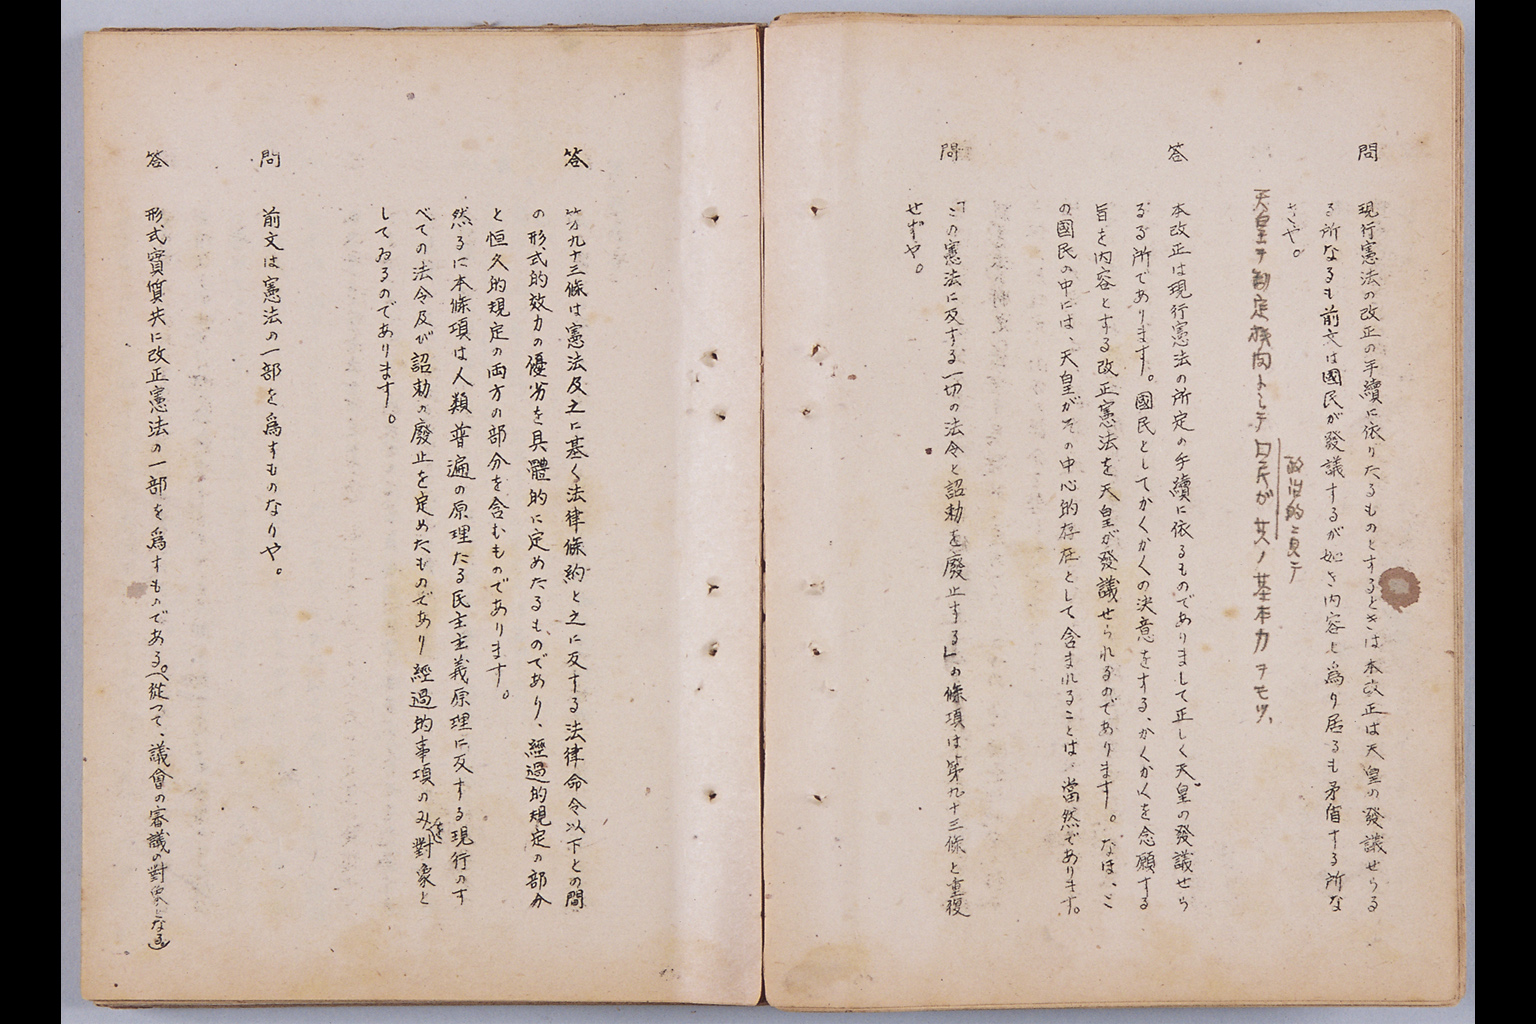 問 現行憲法の改正の手續に依りたるものとするときは本改正は天皇の發議せらる
る所なるも前文は國民が發議するが如き内容と爲り居るも矛盾する所な
きや。
政治的ニ見テ
天皇ヲ 定機関トシテ口民が其ノ基本力ヲモツ、
答 本改正は現行憲法の所定の手續に依るものでありまして正しく天皇の發議せら
るる所であります。國民としてかくかくの決意をする、かくかくを念願する
旨を内容とする改正憲法を天皇が發議せられるのであります。なほ、こ
の國民の中には、天皇がその中心的存在として含まれることは、當然であります。
問 「この憲法に反する一切の法令と詔勅を廢止する」の條項は第九十三條と重複
せずや。
答 第九十三條は憲法及之に基く法律條約と之に反する法律命令以下との間
の形式的效力の優劣を具體的に定めたるものであり、經過的規定の部分
と恒久的規定の両方の部分を含むものであります。
然るに本條項は人類普遍の原理たる民主主義原理に反する現行のす
べての法令及び詔勅の廢止を定めたものであり經過的事項のみを對象と
してゐるのであります。
問 前文は憲法の一部を爲すものなりや。
答 形式實質共に改正憲法の一部を爲すものである。(從つて、議會の審議の對象となる)